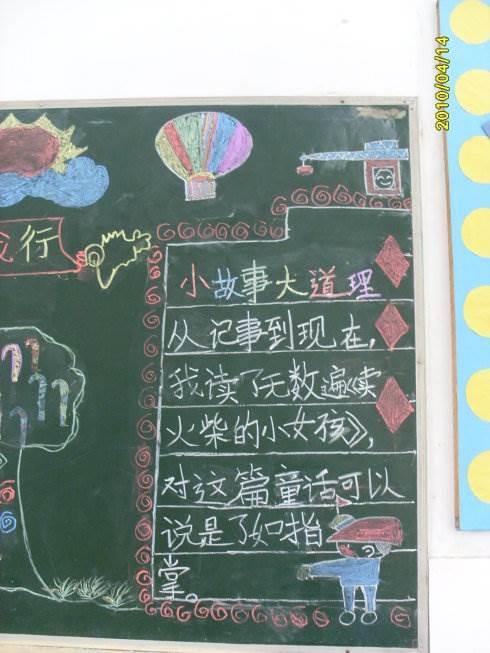 2010/04/14
行
小故事大道理
从记事到现在,
我读了无数遍《卖
火柴的小女孩》,
对这篇童话可以
说是了如指
掌。